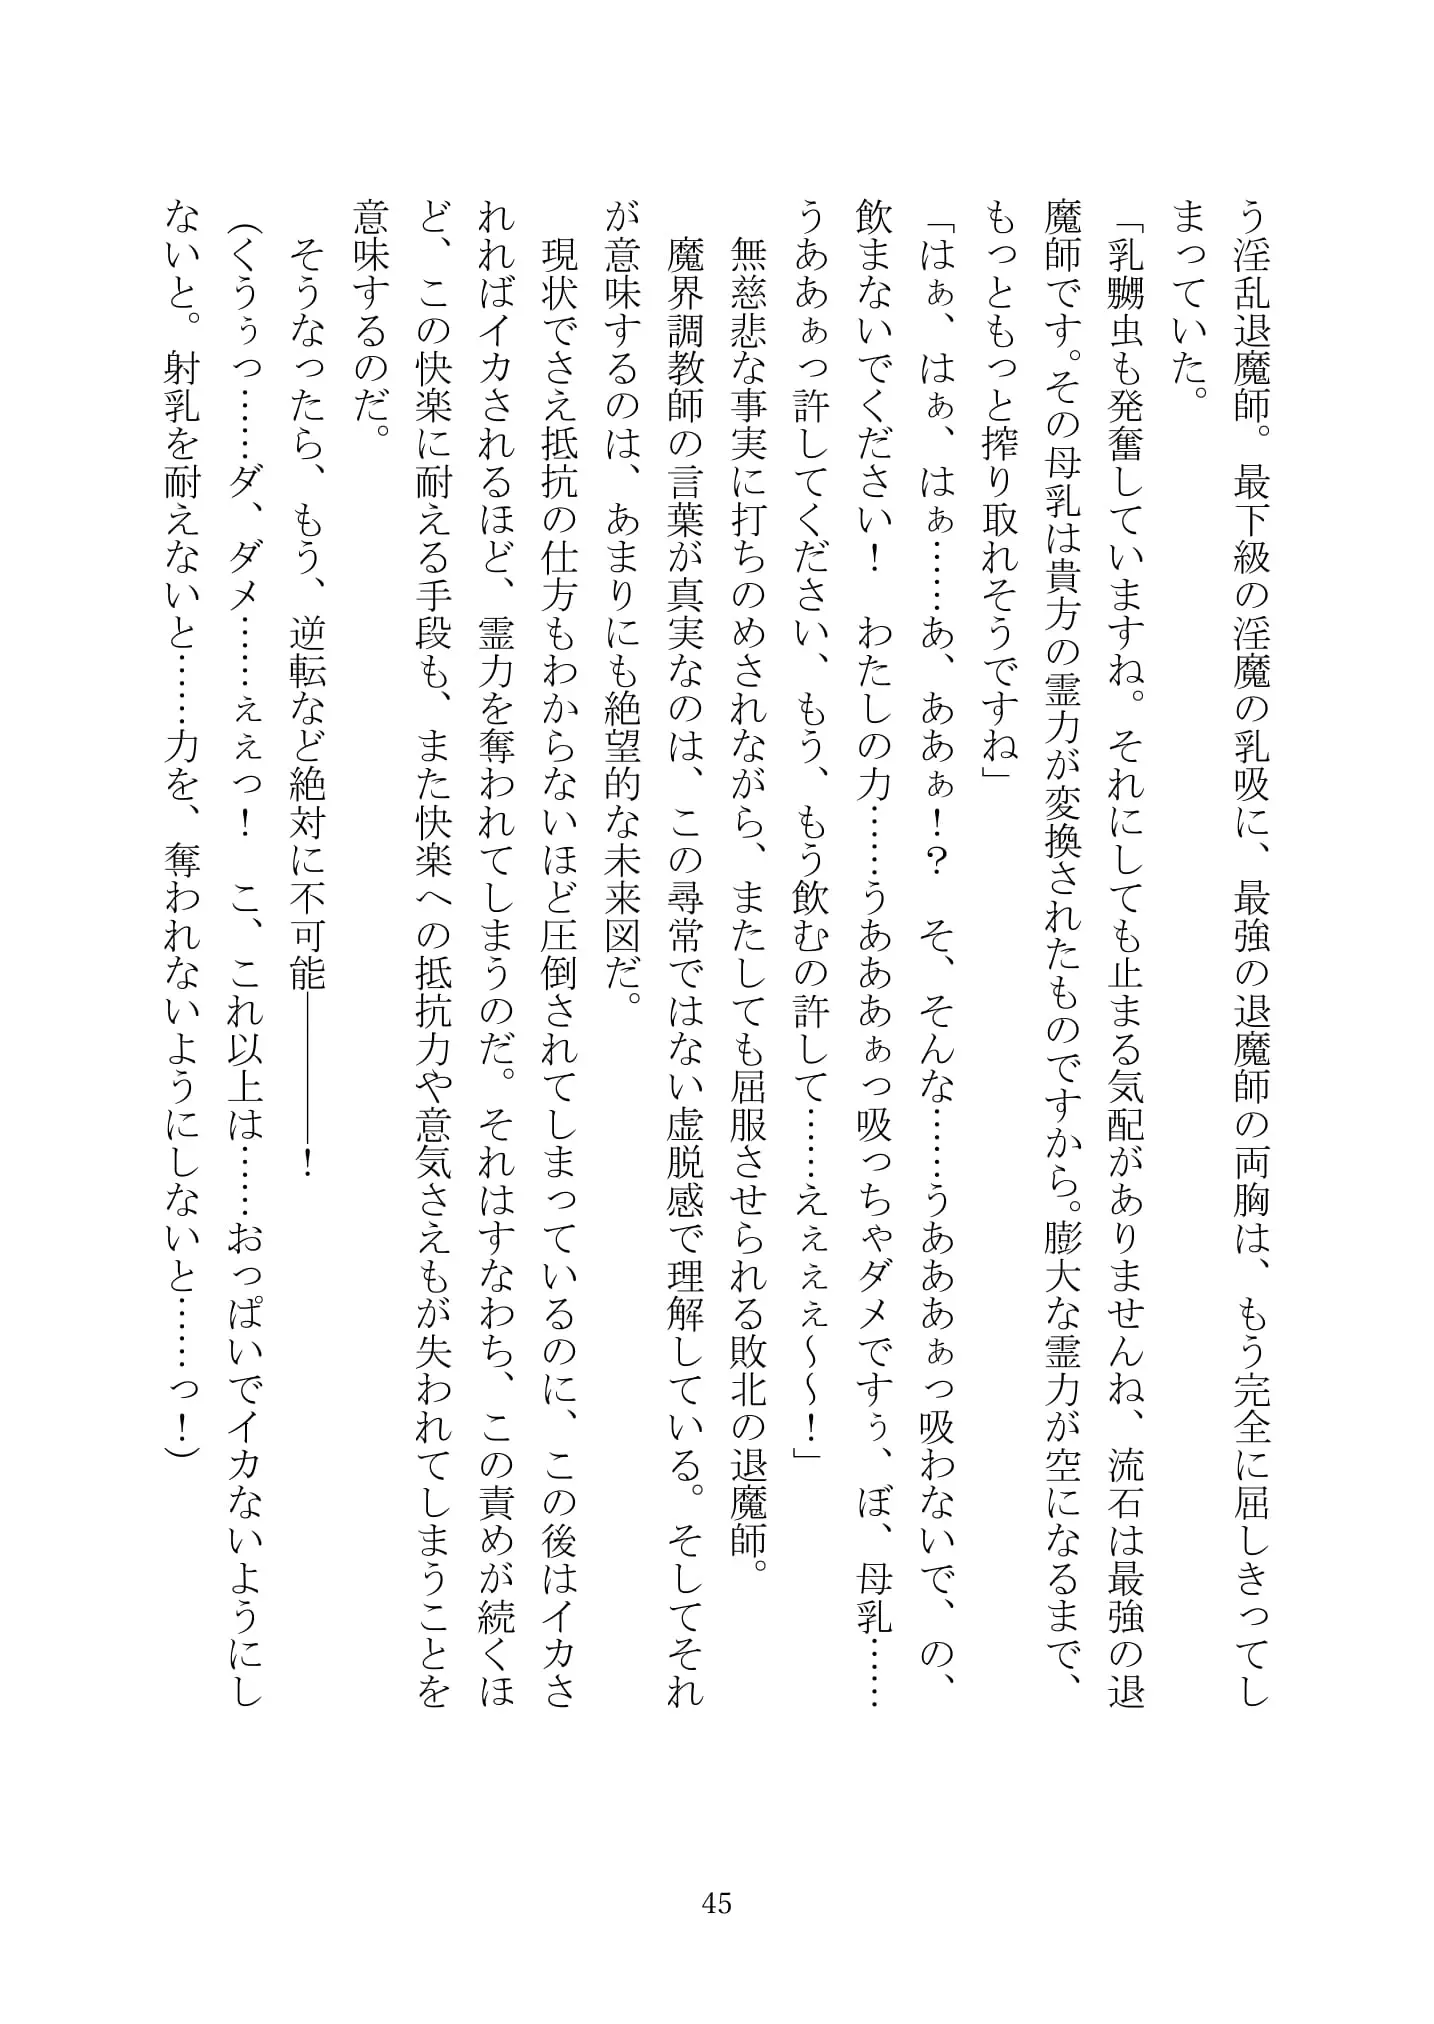 う淫乱退魔師。最下級の淫魔の乳吸に、最強の退魔師の両胸は、もう完全に屈しきってし
まっていた。
「乳嬲虫も発奮していますね。それにしても止まる気配がありませんね、流石は最強の退
魔師です。その母乳は貴方の霊力が変換されたものですから。膨大な霊力が空になるまで、
もっともっと搾り取れそうですね」
「はぁ、はぁ、はぁ……あ、ああぁ！？　そ、そんな……うあああぁっ吸わないで、の、
飲まないでください！　わたしの力……うあああぁっ吸っちゃダメですぅ、ぼ、母乳……
うああぁっ許してください、もう、もう飲むの許して……えぇぇぇ～～！」
　無慈悲な事実に打ちのめされながら、またしても屈服させられる敗北の退魔師。
　魔界調教師の言葉が真実なのは、この尋常ではない虚脱感で理解している。そしてそれ
が意味するのは、あまりにも絶望的な未来図だ。
　現状でさえ抵抗の仕方もわからないほど圧倒されてしまっているのに、この後はイカさ
れればイカされるほど、霊力を奪われてしまうのだ。それはすなわち、この責めが続くほ
ど、この快楽に耐える手段も、また快楽への抵抗力や意気さえもが失われてしまうことを
意味するのだ。
　そうなったら、もう、逆転など絶対に不可能――――！
（くうぅっ……ダ、ダメ……ぇぇっ！　こ、これ以上は……おっぱいでイカないようにし
ないと。射乳を耐えないと……力を、奪われないようにしないと……っ！）
45